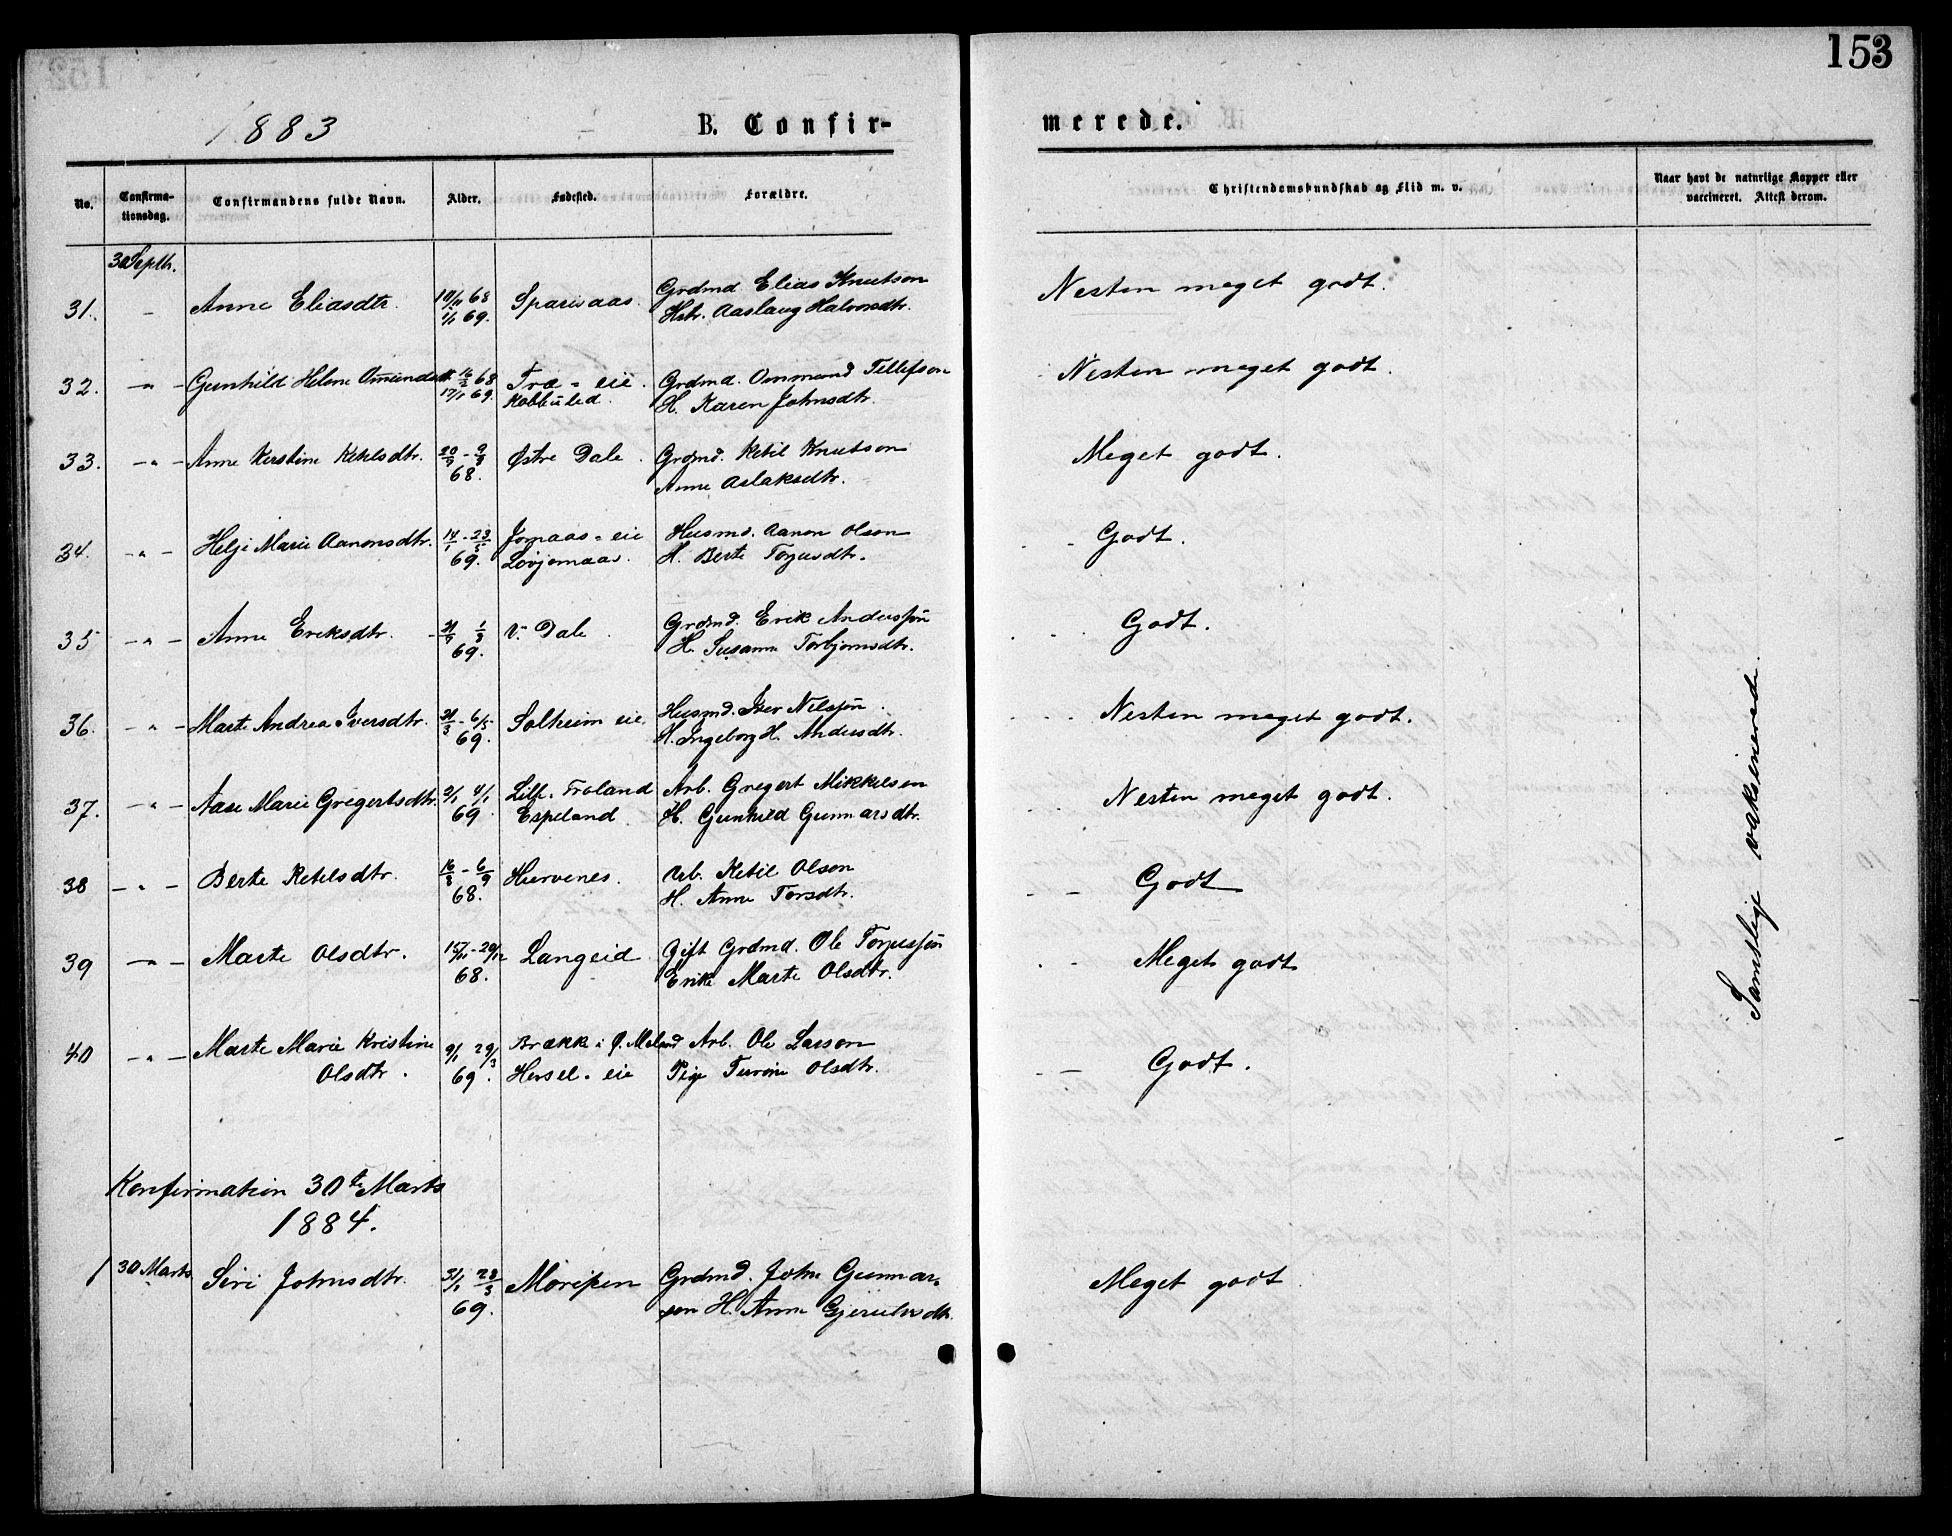 153
1883 B. Confirmerede.
No. Confirmationsdag. Confirmandens fulde Navn. Alder. Fødested. Forældre. Christendomskundskab og Flid m. v. Naar havt de naturlige Kopper eller vaccineret. Attest derom.
30 Septbr.
31. Anne Eliasdtr. 68 Grdmd Elias Knutson Nesten meget godt.
1/1 69. Htr. Aaslaug Halvorsdtr.
32. -"- Gunhild Helene Omundsdtr 68 Træ - eie. Grdmd. Ommund Tellefson Nesten meget godt.
17/1 69. H. Karen Johnsdtr.
33. -"- Anne Kirstine Ketilsdtr. Østre Dale. Grdmd. Ketil Knutson Meget godt.
68. Anne Aslaksdtr.
34. -"- Helje Marie Aanonsdtr. 14/1 - 23/5 Jomaas - eie Husmd. Aanon Olson Godt.
69. H. Berte Torjusdtr.
35 -"- Anne Eriksdtr. V. Dale. Grdmd. Erik Anderssøn Godt.
69. H. Susanne Torbjørnsdtr.
36. -"- Marte Andrea Iversdtr. 21/3 - 6/5 Solheim eie. Husmd. Iver Nilssøn. Nesten meget godt.
69. H. Ingeborg H. Andersdtr.
37. -"- Aase Marie Gregertsdtr. 2/1 4/1 Lille. Froland Arb. Gregert Mikkelsen Nesten meget godt.
69 Espeland H. Gunhild Gunnarsdtr.
38 -"- Berte Ketilsdtr. 16/8 - 6/9 Hurvenes. Arb. Ketil Olson Godt
68. H. Anne Torsdtr.
39 -"- Marte Olsdtr. 15/11 - 29/12 Langeid Gift Grdmd. Ole Torjussøn Meget godt
68. Enke Marte Olsdtr.
40 -"- Marte Marie Kristine 9/1 29/3 Brække i Ø. Meland Arb. Ole Larson Godt.
Olsdtr. 69. Hersel - eie Pige Terrine Olsdtr.
Samtlige vaksinerede.
Konfirmation 30te Marts
1884.
1 30 Marts Siri Johnsdtr. 31/1 28/3 Moripen Grdmd. John Gunnar- Meget godt
69. son H. Anne Gjerulvsdtr.